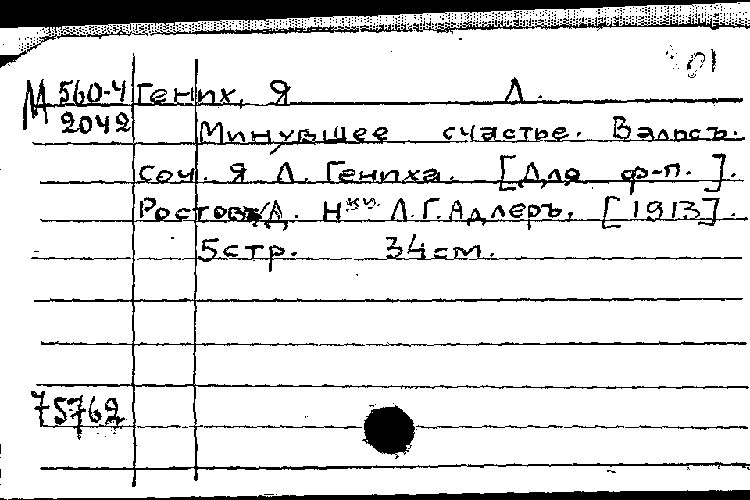 01
М 560-4 Гених, Я Л.
2042
Минувшее счастье. Вальсъ.
соч. Я Л. Гениха. [Для ф-п.].
Ростов н/Д. Л.Г.Адлеръ, [1913].
5 стр. 34 см.
75762